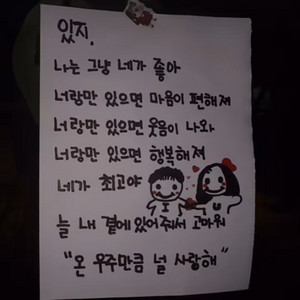 있지,
나는 그냥 네가 좋아
너랑만 있으면 마음이 편해져
너랑만 있으면 웃음이 나와
너랑만 있으면 행복해져
네가 최고야
늘 내 곁에 있어줘서 고마워
"온 우주만큼 널 사랑해"